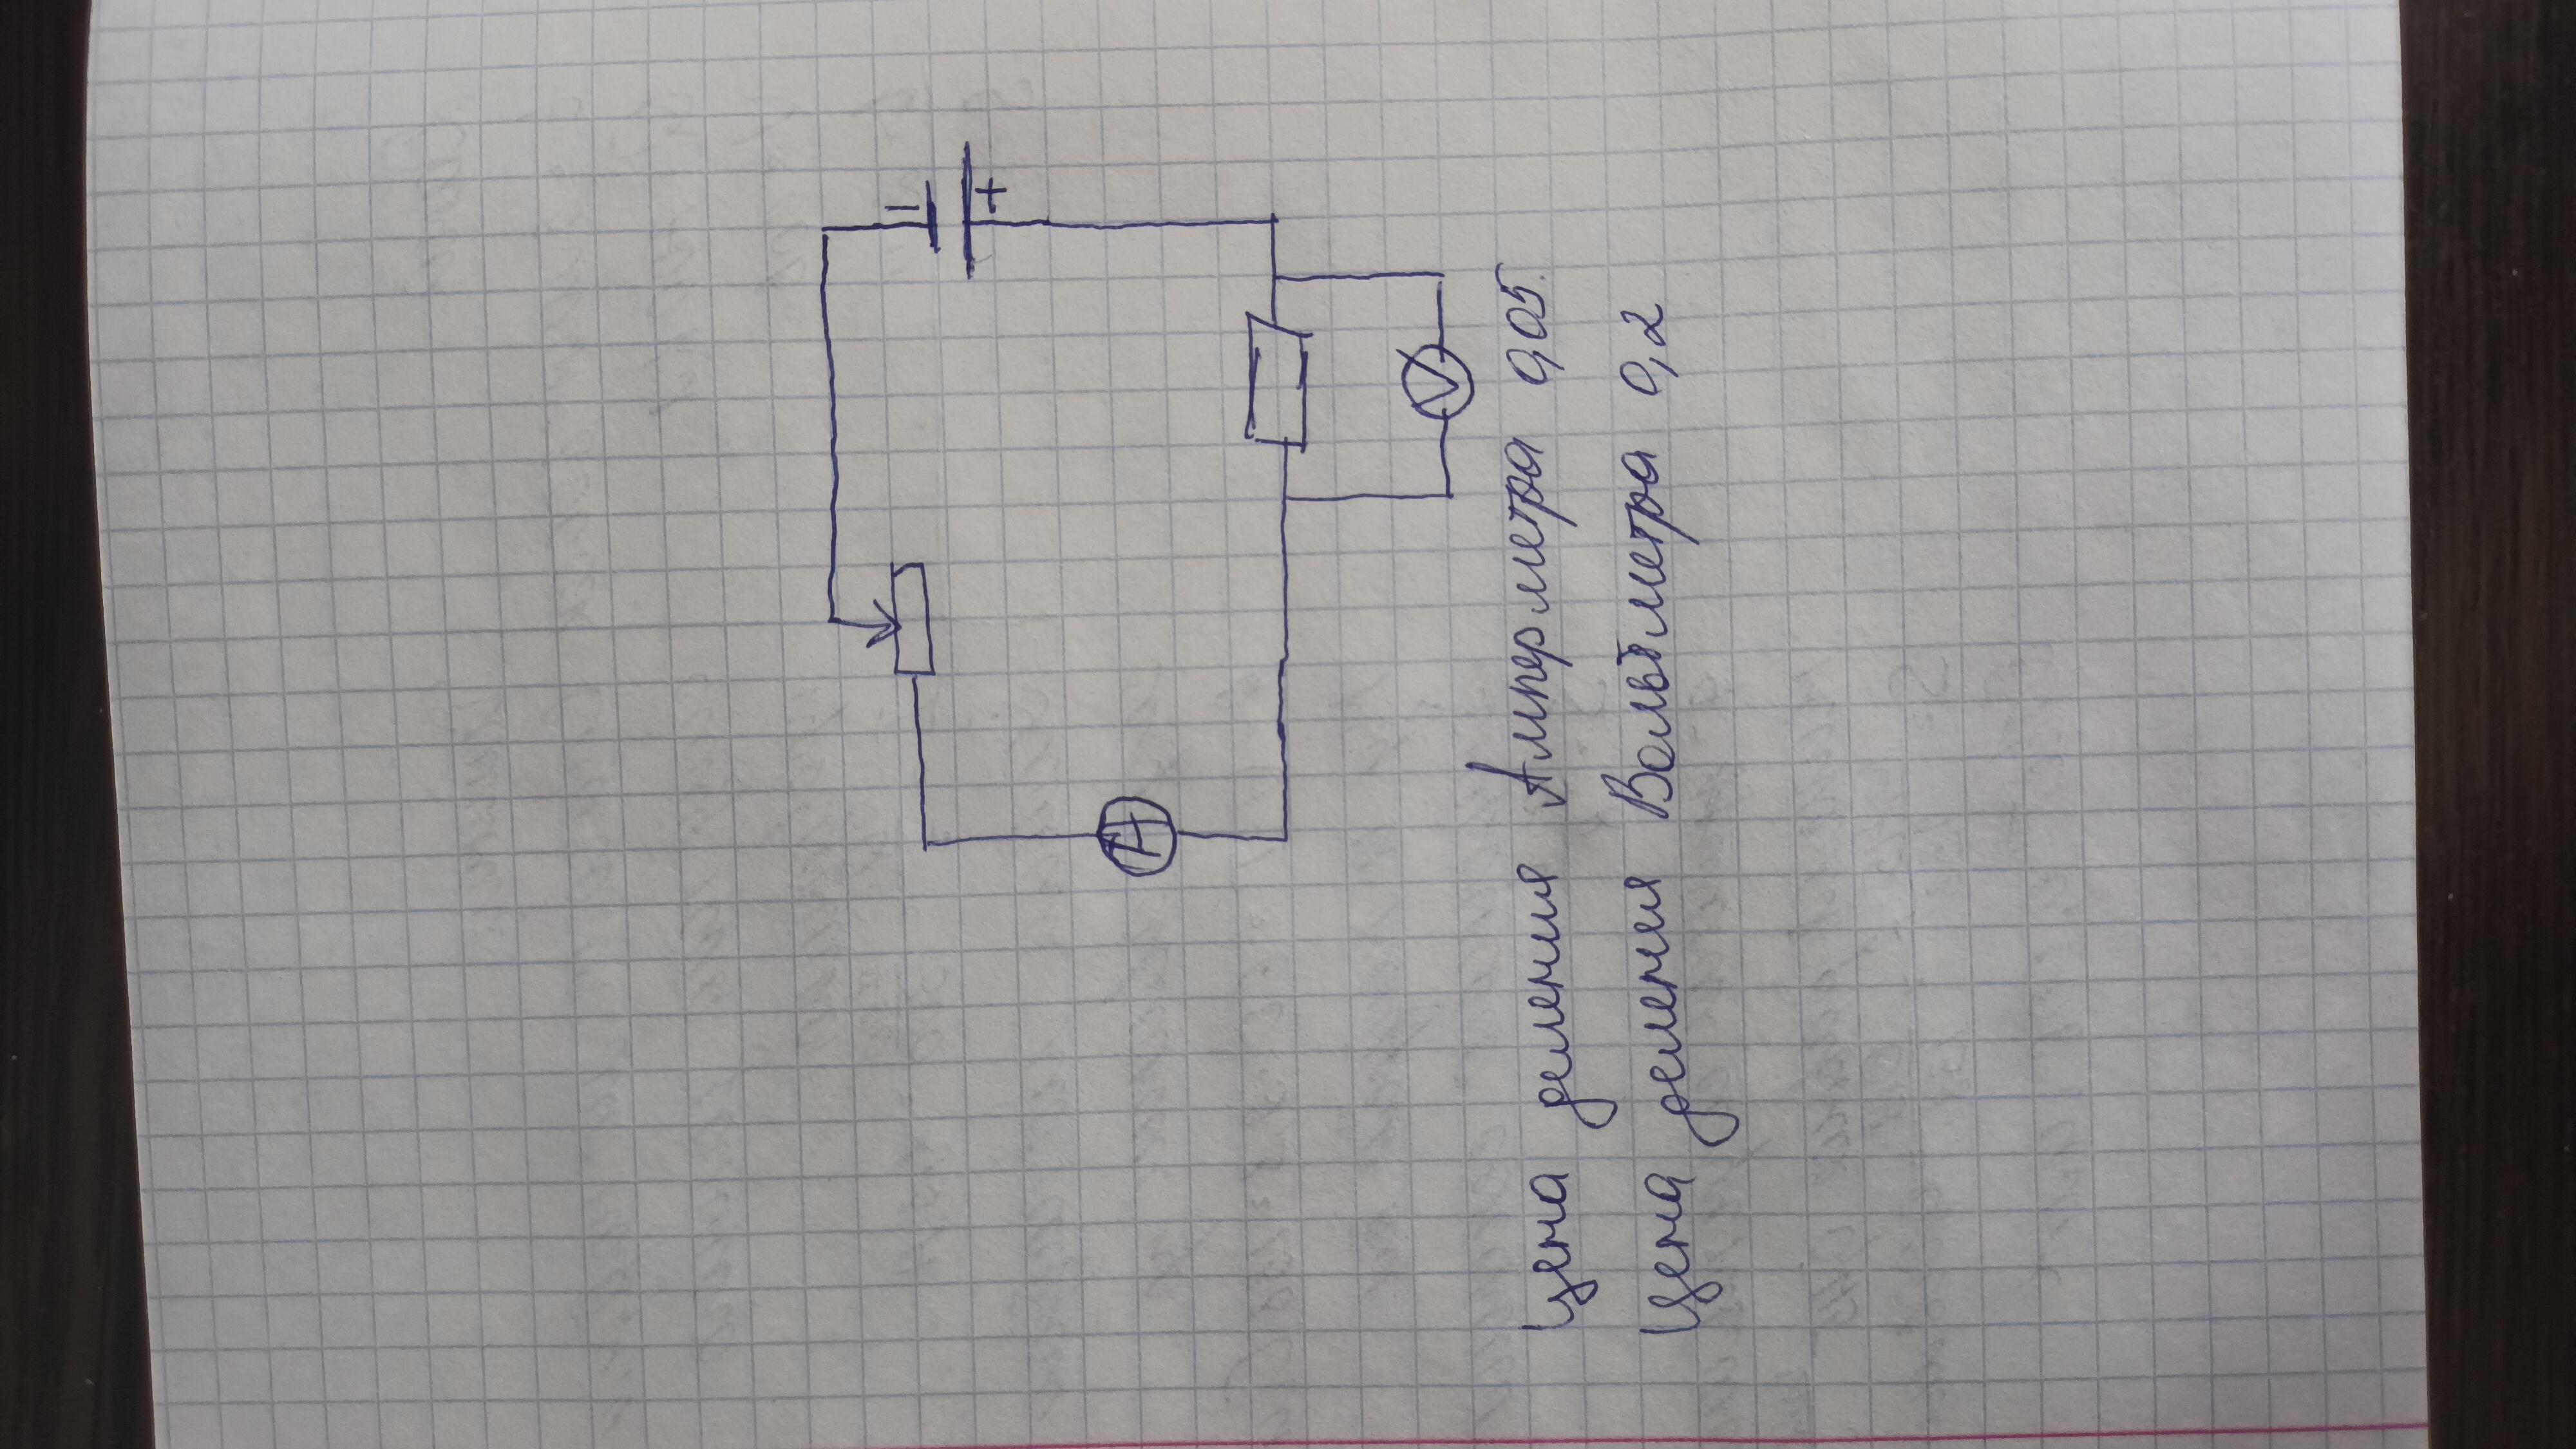 − +
A
V
Цена деления Амперметра 0,05.
Цена деления Вольтметра 0,2